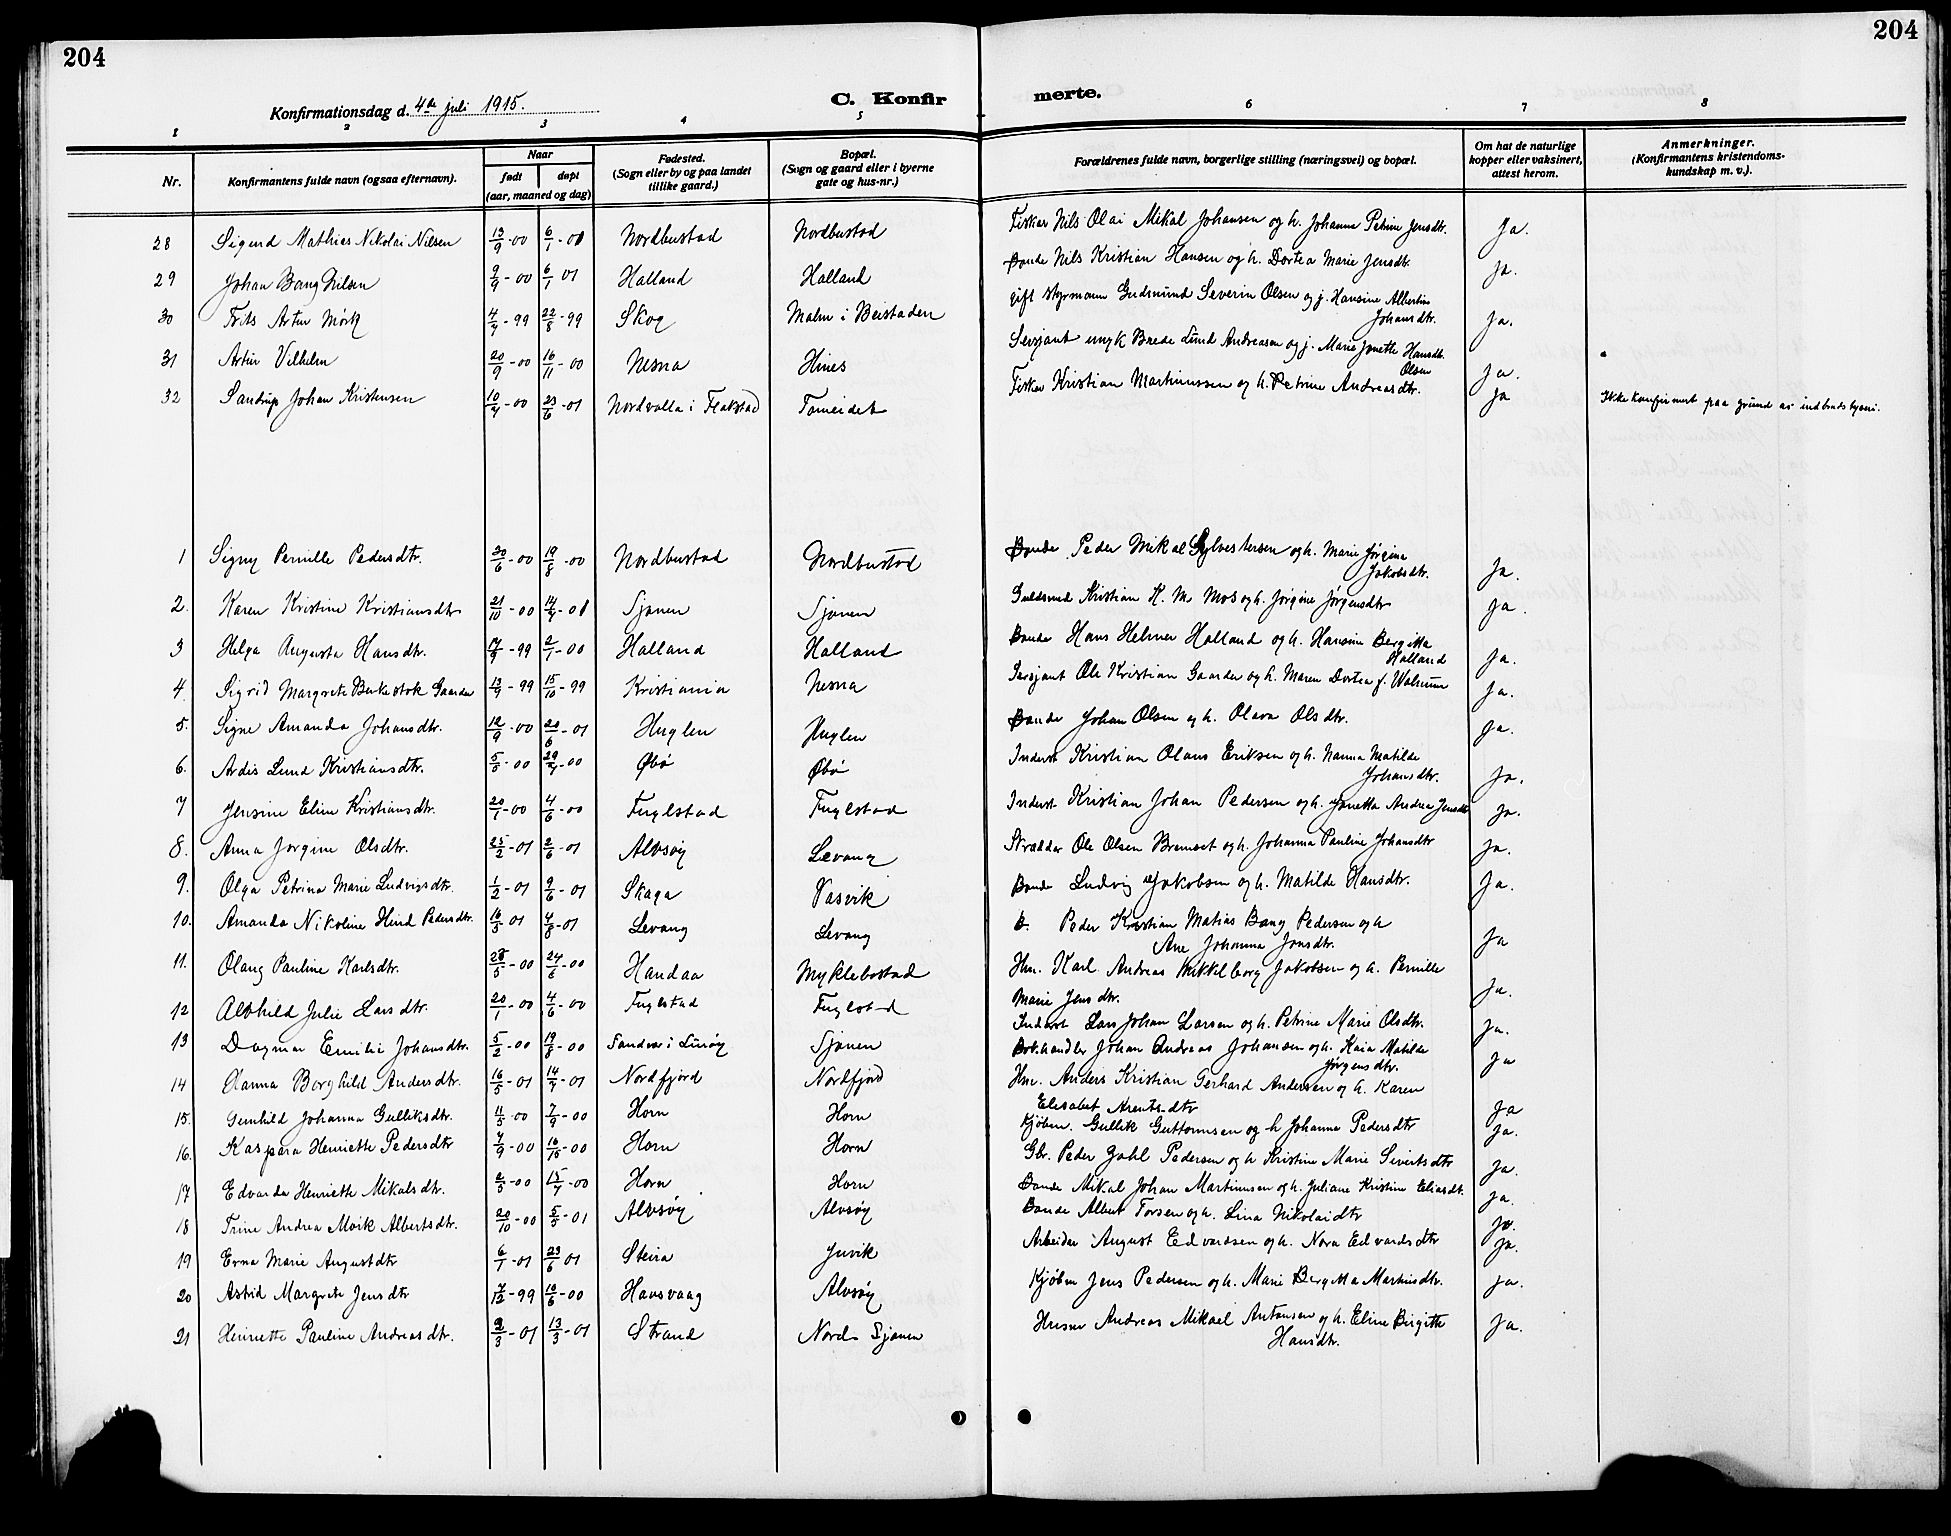 204
204
Konfirmationsdag d. 4de juli 1915.
C. Konfir
merte.
1 2 3 4 5 6 7 8
Nr.
Konfirmantens fulde navn (ogsaa efternavn).
Naar
født døpt
(aar, maaned og dag)
Fødested.
(Sogn eller by og paa landet
tillike gaard.)
Bopæl.
(Sogn og gaard eller i byerne
gate og hus-nr.)
Forældrenes fulde navn, borgerlige stilling (næringsvei) og bopæl.
Om hat de naturlige
kopper eller vaksinert,
attest herom.
Anmerkninger.
(Konfirmantens kristendoms-
kundskap m. v.).
28 Sigurd Mathias Nikolai Nilsen 13/9-00 6/1-01 Nordbustad Nordbustad Fisker Nils Olai Mikal Johansen og h. Johanna Petrine Jensdtr. Ja.
29 Johan Bang Nilsen 9/9-00 6/1 01 Halland Halland Bonde Nils Kristian Hansen og h. Dortea Marie Jensdtr. Ja.
30 Frits Artur Mørk 4/7-99 22/8-99 Skog Malm i Beistaden gift styrmann Gudmund Severin Olsen og j. Hansine Albertine
Johansdtr. Ja.
31 Artur Vilhelm 20/9-00 16/11-00 Nesna Hines Sersjant Brede Lund Andreasen og j. Marie Jonette Hansdtr.
Olsen Ja.
32 Sandrup Johan Kristensen 10/4-00 23/6-01 Nordvalla i Flakstad Tomeidet Fisker Kristian Martinussen og h. Petrine Andreasdtr. Ja Ikke konfirmert paa grund av indbruds tyveri.
1 Signy Pernille Pedersdtr. 30/6-00 19/8-00 Nordbustad Nordbustad Bonde Peder Mikal Sylvestersen og h. Marie Jørgine
Jakobsdtr. Ja.
2. Karen Kristine Kristiansdtr 21/10-00 14/7-01 Sjonen Sjonen Guldsmed Kristian K. M. Mos og h. Jørgine Jørgensdtr Ja.
3 Helga Augusta Hansdtr. 17/9-99 2/1-00 Halland Halland Bonde Hans Helmer Halland og h. Hansine Bergitta
Halland Ja.
4. Sigrid Margrete Birkestok Gaarder 13/9-99 15/10-99 Kristiania Nesna Sersjant Ole Kristian Gaarder og h. Maren Dortea f. Walnum Ja.
5. Signe Amanda Johansdtr. 12/9-00 23/6-01 Huglen Huglen Bonde Johan Olsen og h. Olava Olsdtr. Ja.
6. Ardis Lund Kristiansdtr. 5/5-00 29/7-00 Øbø Øbø Inderst Kristian Olaus Eriksen og h. Nanna Matilde
Johansdtr. Ja.
7 Jensine Elise Kristiansdtr. 20/1-00 4/6-00 Fuglstad Fuglstad Inderst Kristian Johan Pedersen og h. Jonetta Andrea Jensdtr Ja.
8. Anna Jørgine Olsdtr. 25/2-01 2/6-01 Alvsøy Levang Strædder Ole Olsen Bremset og h. Johanna Pauline Johansdtr Ja.
9. Olga Petrina Marie Ludvigsdtr. 1/2-01 9/6-01 Skaga Vasvik Bonde Ludvig Jakobsen og h. Matilde Hansdtr. Ja.
10. Amanda Nikoline Hind Pedersdtr. 16/5 01 4/8-01 Levang Levang B. Peder Kristian Matias Bang Pedersen og h
Ane Johanna Jonsdtr. Ja
11. Olaug Pauline Karlsdtr. 28/5-00 24/6-00 Handaa Myklebostad Hm. Karl Andreas Mikkelborg Jakobsen og h. Pernille
Marie Jensdtr. Ja.
12 Alvhild Julie Larsdtr. 20/1-00 4/6-00 Fuglstad Fuglst-d Inderst Lars Johan Larsen og h. Petrine Marie Olsdtr. Ja.
13 Dagmar Emilie Johansdtr. 5/2-00 19/8-00 Sandvær i Lurøy Sjonen Bokhandler Johan Andreas Johansen og h. Kaia Matilde
Jørgensdtr. Ja
14 Hanna Borghild Andersdtr. 16/5-01 14/7-01 Nordfjord Nordfjord Hm. Anders Kristian Gerhard Andersen og h. Karen
Elisabet Arentsdtr Ja
15. Gunhild Johanna Gulliksdtr. 11/5-00 7/9-00 Horn Horn Kjøbm. Gullik Guttormsen og h Johanna Pedersdtr Ja.
16. Kaspara Henriette Pedersdtr 7/9-00 16/10-00 Horn Horn Gbr. Peder Zahl Pedersen og h Kristine Marie Sivertsdtr Ja.
17 Edvarda Henriette Mikalsdtr. 2/5-00 15/7-00 Horn Horn Bonde Mikal Johan Martinusen og h. Juliane Kristine Eliasdtr. Ja.
18 Trine Andrea Moik Albertsdtr. 20/10-00 5/5-01 Alvsøy Alvsøy Bonde Albert Torsen og h. Lina Nikolaidtr Ja.
19 Erna Marie Augustdtr 6/1-01 23/6 01 Steira Juvik Arbeider August Edvardsen og h. Nora Edvardsdtr Ja.
20 Astrid Margrete Jensdtr 7/12-99 10/6-00 Havsvaag Alvsøy Kjøbm Jens Pedersen og h. Marie Bergitta Martinsdtr. Ja.
21 Henriette Pauline Andreasdtr. 2/3-01 13/3-01 Strand Nord-Sjonen Husm Andreas Mikael Antonsen og h. Eline Birgitte
Hansdtr. Ja.